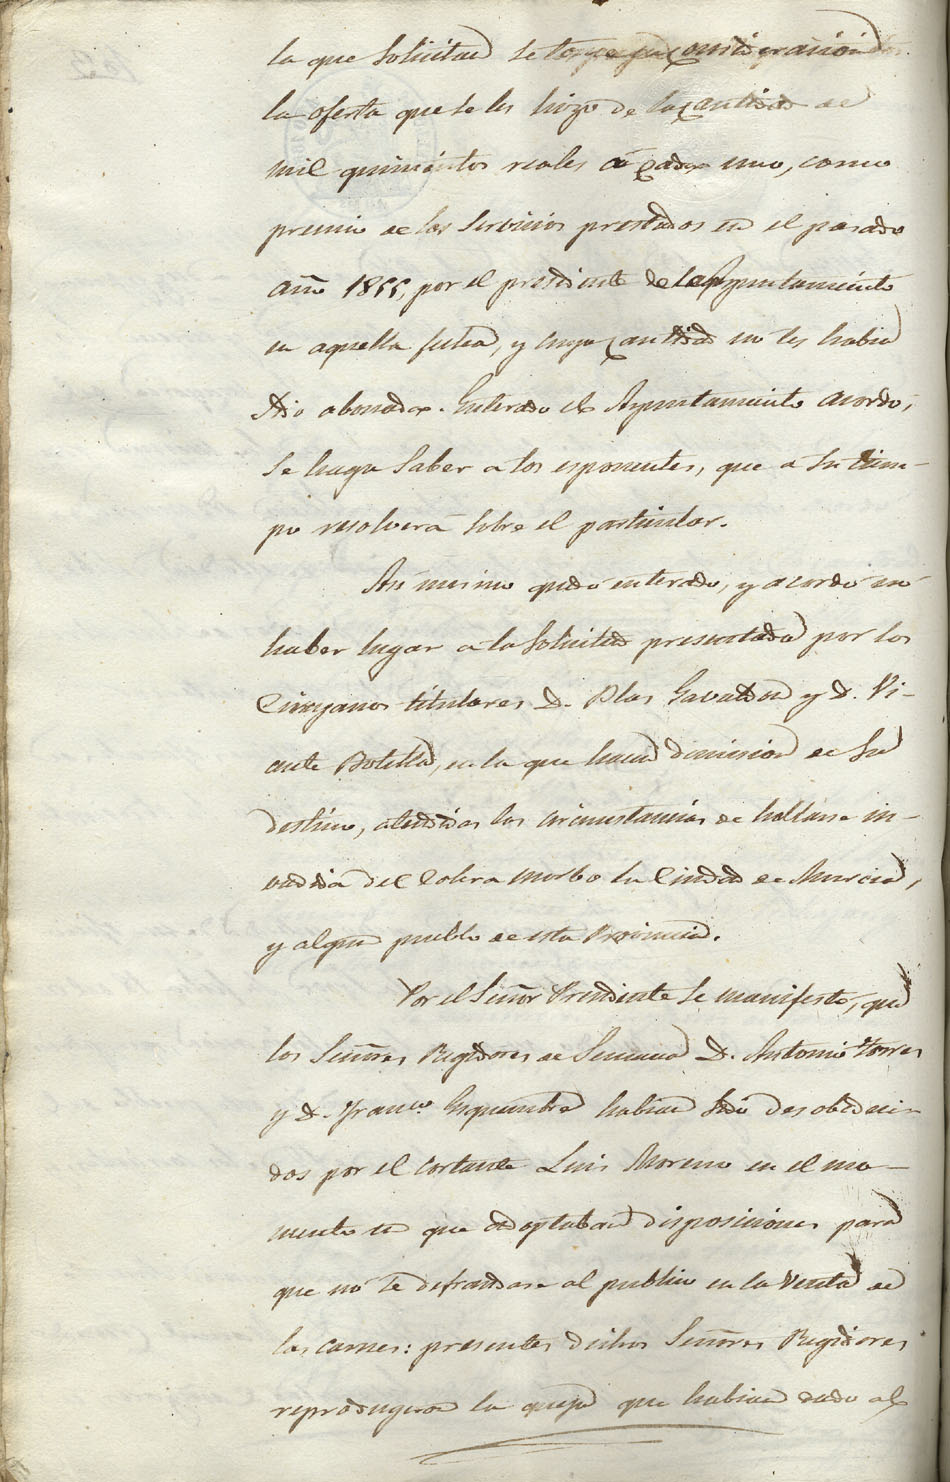 la que solicitan se tome en consideracion
la oferta que se les hizo de la cantidad de
mil quinientos reales á cada uno, como
premio de los servicios prestados en el pasado
año 1855, por el presidente del Ayuntamiento
en aquella fecha, y cuya cantidad no les habia
sido abonada. Enterado el Ayuntamiento acordó,
se haga saber a los esponentes, que á su tiem-
po resolverá sobre el particular.
Asi mismo quedó enterado, y acordó no
haber lugar á la solicitud presentada por los
Cirujanos titulares D. Blas Gavaldon y D. Vi-
cente Botella, en la que hacen dimision de su
destino, atendidas las circunstancias de hallarse in-
vadida del Colera morbo la Ciudad de Murcia,
y algun pueblo de esta Provincia.
Por el Señor Presidente se manifestó, que
los Señores Regidores de Semana D. Antonio Torres
y D. Franco Esquembre habian sido desobedeci-
dos por el cortante Luis Moreno en el mo-
mento en que adoptaban disposiciones para
que no se defraudase al publico en la venta de
las carnes: presentes dichos Señores Regidores
reprodugeron la queja que habian dado al